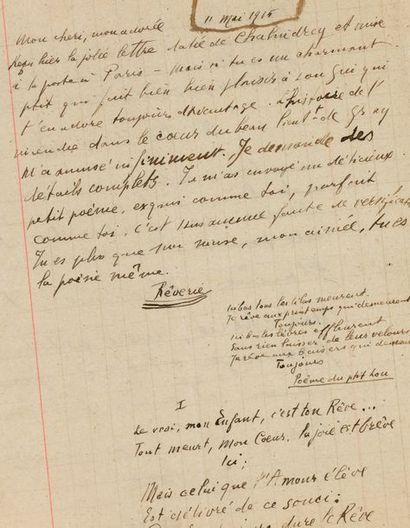 11 Mai 1915
Mon chéri, mon adorée
reçu hier la jolie lettre datée de Chalindrey et mise
à la poste à Paris — Mais si tu es un charmant
ptit qui fait bien bien plaisir à son Gui qui
t'en adore toujours davantage. L'histoire de l'
incendie dans le cœur du beau lieut^t de Gray
m'a amusé infiniment. Je demande des
détails complets. Tu m'as envoyé un délicieux
petit poème, exquis comme toi, parfait
comme toi. C'est sans aucune faute de versification
Tu es plus que ma muse, mon aimée, tu es
la poésie même.
Rêverie
Ici bas tous les lilas meurent
Je rêve aux printemps qui demeurent
Toujours.
Ici bas les lèvres effleurent
Sans rien laisser de leur velours
Je rêve aux baisers qui demeurent
Toujours
Poème du ptit Lou
I
Le vrai, mon Enfant, c'est ton Rêve...
Tout meurt, mon Cœur, la joie est brève
Ici;
Mais celui que l'Amour élève
Est délivré de ce souci:
dure le Rêve